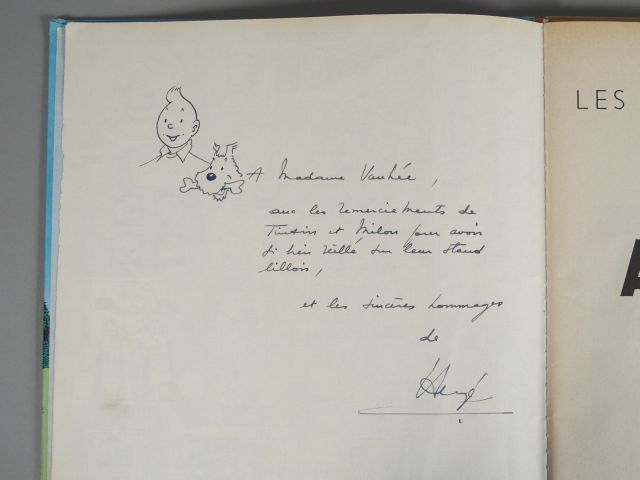 A Madame Vanhée,
LES
avec les remerciements de
Tintin et Milou pour avoir
si bien veillé sur leur stand
lillois,
A
et les sincères hommages
de
Hergé